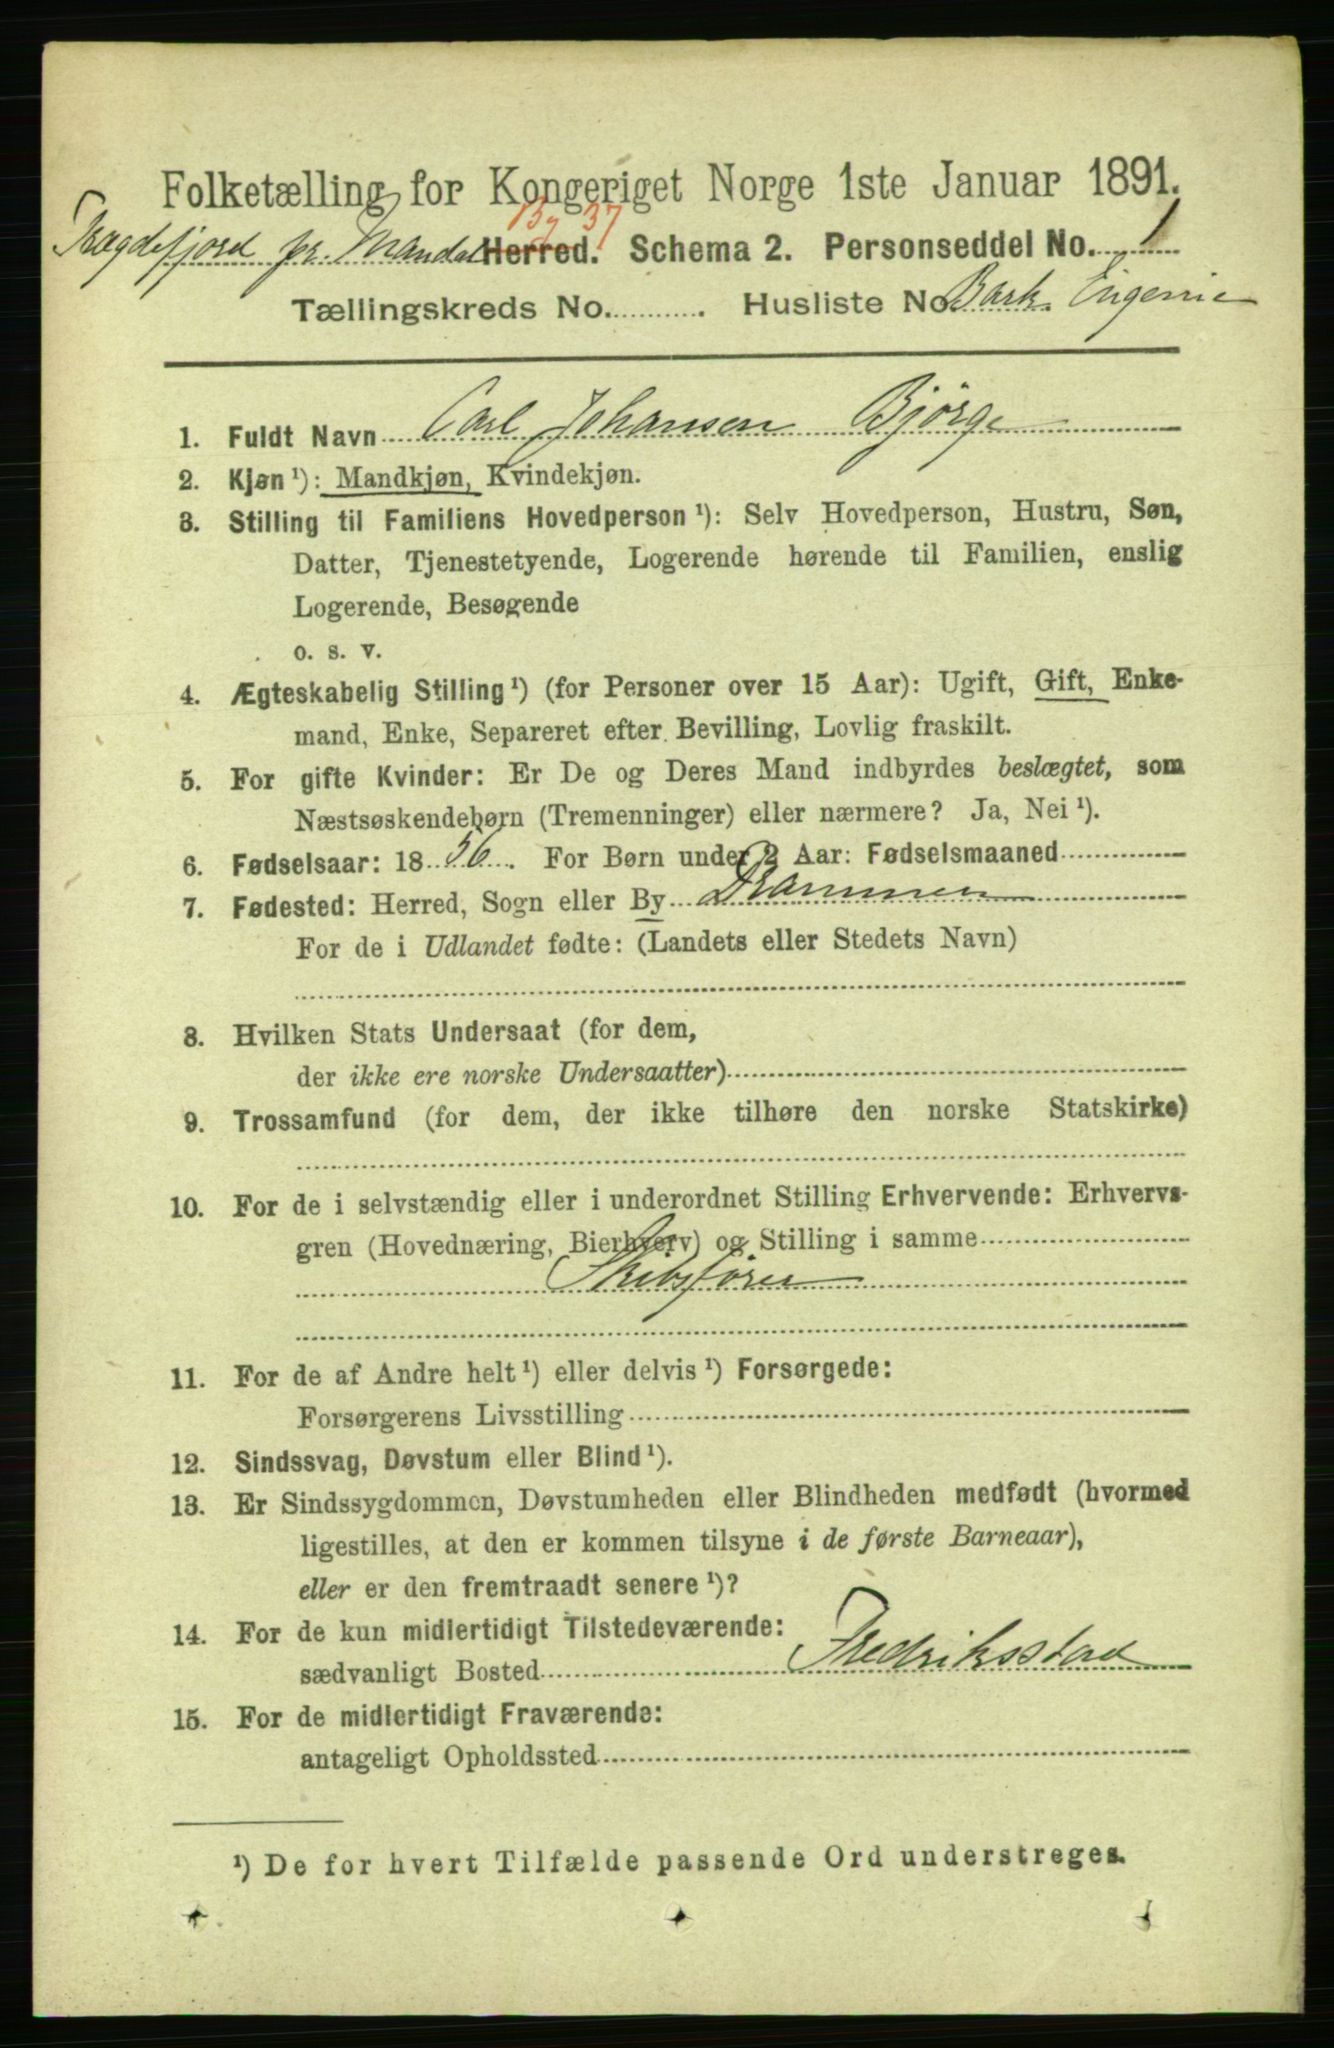 Folketælling for Kongeriget Norge 1ste Januar 1891.
By 37
Trægdefjord pr. Mandal Herred. Schema 2. Personseddel No. 1
Tællingskreds No. . Husliste No. Bark. Eugenie
1. Fuldt Navn Carl Johansen Bjørge
2. Kjøn ¹): Mandkjøn, Kvindekjøn.
3. Stilling til Familiens Hovedperson ¹): Selv Hovedperson, Hustru, Søn,
Datter, Tjenestetyende, Logerende hørende til Familien, enslig
Logerende, Besøgende
o. s. v.
4. Ægteskabelig Stilling ¹) (for Personer over 15 Aar): Ugift, Gift, Enke-
mand, Enke, Separeret efter Bevilling, Lovlig fraskilt.
5. For gifte Kvinder: Er De og Deres Mand indbyrdes beslægtet, som
Næstsøskendebørn (Tremenninger) eller nærmere? Ja, Nei ¹).
6. Fødselsaar: 18 56. For Børn under 2 Aar: Fødselsmaaned
7. Fødested: Herred, Sogn eller By Drammen
For de i Udlandet fødte: (Landets eller Stedets Navn)
8. Hvilken Stats Undersaat (for dem,
der ikke ere norske Undersaatter)
9. Trossamfund (for dem, der ikke tilhøre den norske Statskirke)
10. For de i selvstændig eller i underordnet Stilling Erhvervende: Erhvervs-
gren (Hovednæring, Bierhverv) og Stilling i samme
Skibsfører
11. For de af Andre helt ¹) eller delvis ¹) Forsørgede:
Forsørgerens Livsstilling
12. Sindssvag, Døvstum eller Blind ¹).
13. Er Sindssygdommen, Døvstumheden eller Blindheden medfødt (hvormed
ligestilles, at den er kommen tilsyne i de første Barneaar),
eller er den fremtraadt senere ¹)?
14. For de kun midlertidigt Tilstedeværende:
sædvanligt Bosted Fredriksstad
15. For de midlertidigt Fraværende:
antageligt Opholdssted
¹) De for hvert Tilfælde passende Ord understreges.